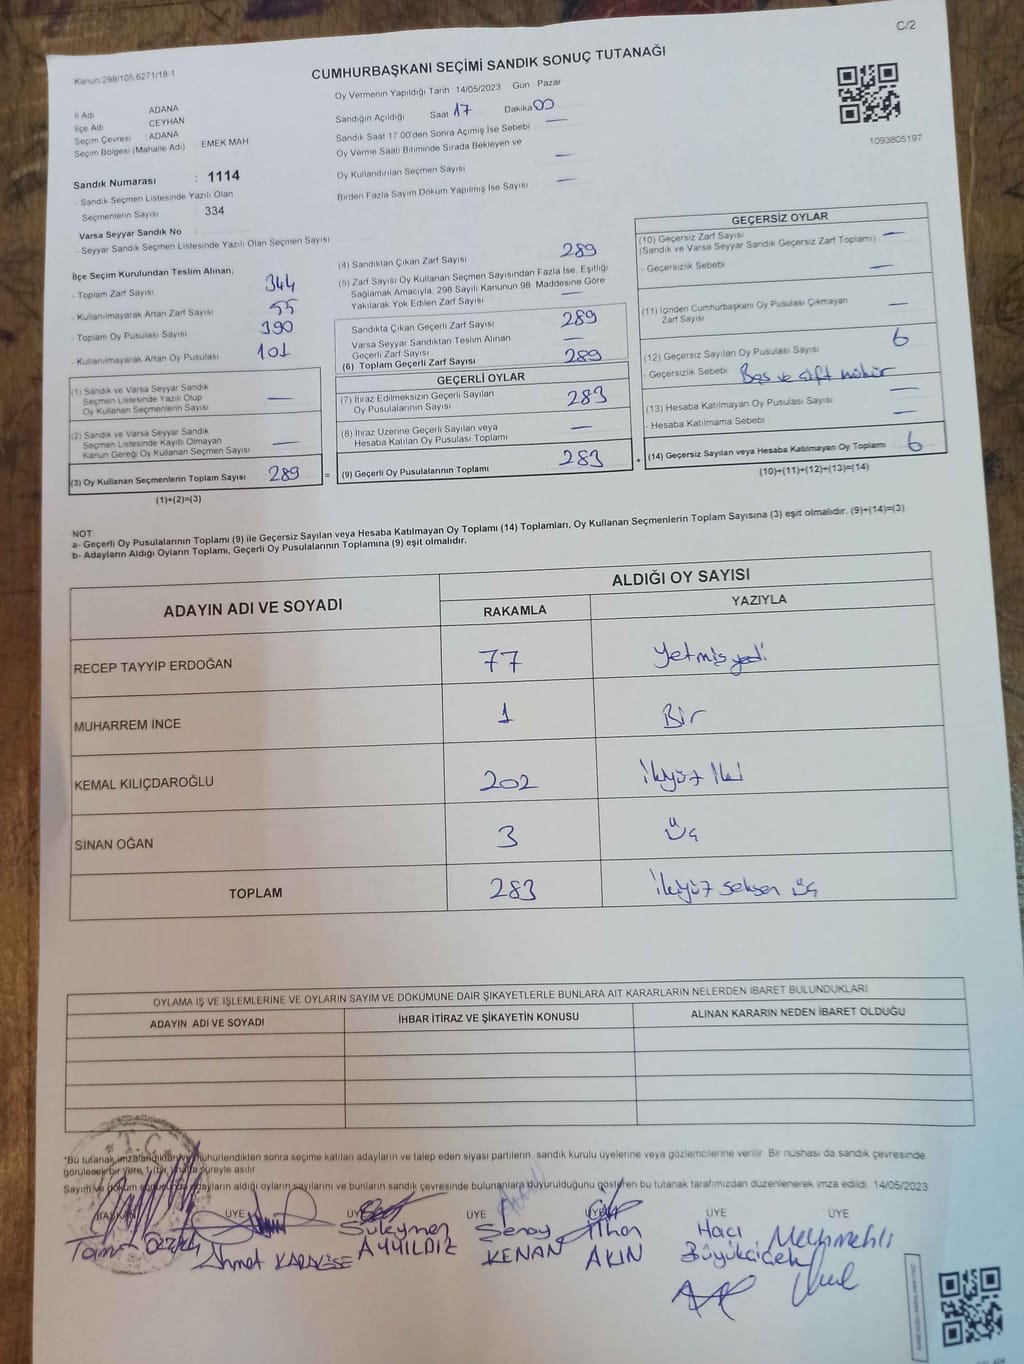 C/2
Kanun.298/105,6271/18-1
CUMHURBAŞKANI SEÇİMİ SANDIK SONUÇ TUTANAĞI
Oy Vermenin Yapıldığı Tarih 14/05/2023 Gün Pazar
İl Adı ADANA
İlçe Adı CEYHAN
Seçim Çevresi : ADANA
Seçim Bölgesi (Mahalle Adı) EMEK MAH
Sandığın Açıldığı Saat 17 Dakika 00
Sandık Saat 17:00'den Sonra Açımış İse Sebebi —
Oy Verme Saati Bitiminde Sırada Bekleyen ve
Oy Kullandırılan Seçmen Sayısı —
Birden Fazla Sayım Döküm Yapılmış İse Sayısı —
1093805197
Sandık Numarası : 1114
- Sandık Seçmen Listesinde Yazılı Olan
Seçmenlerin Sayısı : 334
Varsa Seyyar Sandık No :
- Seyyar Sandık Seçmen Listesinde Yazılı Olan Seçmen Sayısı
İlçe Seçim Kurulundan Teslim Alınan;
- Toplam Zarf Sayısı 344
- Kullanılmayarak Artan Zarf Sayısı 55
- Toplam Oy Pusulası Sayısı 390
- Kullanılmayarak Artan Oy Pusulası 101
(1) Sandık ve Varsa Seyyar Sandık
Seçmen Listesinde Yazılı Olup
Oy Kullanan Seçmenlerin Sayısı —
(2) Sandık ve Varsa Seyyar Sandık
Seçmen Listesinde Kayıtlı Olmayan
Kanun Gereği Oy Kullanan Seçmen Sayısı —
(3) Oy Kullanan Seçmenlerin Toplam Sayısı 289 =
(1)+(2)=(3)
(4) Sandıktan Çıkan Zarf Sayısı 289
(5) Zarf Sayısı Oy Kullanan Seçmen Sayısından Fazla İse, Eşitliği
Sağlamak Amacıyla, 298 Sayılı Kanunun 98. Maddesine Göre
Yakılarak Yok Edilen Zarf Sayısı —
Sandıkta Çıkan Geçerli Zarf Sayısı 289
Varsa Seyyar Sandıktan Teslim Alınan
Geçerli Zarf Sayısı —
(6) Toplam Geçerli Zarf Sayısı 289
GEÇERLİ OYLAR
(7) İtiraz Edilmeksizin Geçerli Sayılan
Oy Pusulalarının Sayısı 283
(8) İtiraz Üzerine Geçerli Sayılan veya
Hesaba Katılan Oy Pusulası Toplamı —
(9) Geçerli Oy Pusulalarının Toplamı 283 +
GEÇERSİZ OYLAR
(10) Geçersiz Zarf Sayısı —
(Sandık ve Varsa Seyyar Sandık Geçersiz Zarf Toplamı)
- Geçersizlik Sebebi —
(11) İçinden Cumhurbaşkanı Oy Pusulası Çıkmayan
Zarf Sayısı —
(12) Geçersiz Sayılan Oy Pusulası Sayısı 6
- Geçersizlik Sebebi Boş ve çift mühür
(13) Hesaba Katılmayan Oy Pusulası Sayısı —
- Hesaba Katılmama Sebebi —
(14) Geçersiz Sayılan veya Hesaba Katılmayan Oy Toplamı 6
(10)+(11)+(12)+(13)=(14)
NOT:
a- Geçerli Oy Pusulalarının Toplamı (9) ile Geçersiz Sayılan veya Hesaba Katılmayan Oy Toplamı (14) Toplamları, Oy Kullanan Seçmenlerin Toplam Sayısına (3) eşit olmalıdır. (9)+(14)=(3)
b- Adayların Aldığı Oyların Toplamı, Geçerli Oy Pusulalarının Toplamına (9) eşit olmalıdır.
ADAYIN ADI VE SOYADI
ALDIĞI OY SAYISI
RAKAMLA YAZIYLA
RECEP TAYYİP ERDOĞAN 77 Yetmiş yedi
MUHARREM İNCE 1 Bir
KEMAL KILIÇDAROĞLU 202 İkiyüz İki
SİNAN OĞAN 3 Üç
TOPLAM 283 İkiyüz seksen üç
OYLAMA İŞ VE İŞLEMLERİNE VE OYLARIN SAYIM VE DÖKÜMÜNE DAİR ŞİKAYETLERLE BUNLARA AİT KARARLARIN NELERDEN İBARET BULUNDUKLARI
ADAYIN ADI VE SOYADI
İHBAR İTİRAZ VE ŞİKAYETİN KONUSU
ALINAN KARARIN NEDEN İBARET OLDUĞU
T.C.
*Bu tutanak imzalandıktan ve mühürlendikten sonra seçime katılan adayların ve talep eden siyasi partilerin, sandık kurulu üyelerine veya gözlemcilerine verilir. Bir nüshası da sandık çevresinde
görülecek bir yere, 1 (bir) hafta süreyle asılır.
Sayım ve döküm sonucunda adayların aldığı oyların sayılarını ve bunların sandık çevresinde bulunanlara duyurulduğunu gösteren bu tutanak tarafımızdan düzenlenerek imza edildi. 14/05/2023
BAŞKAN ÜYE ÜYE ÜYE ÜYE ÜYE ÜYE
Süleyman Senay İlhan Hacı
Ahmet AYYILDIZ KENAN AKIN Büyükçiçek